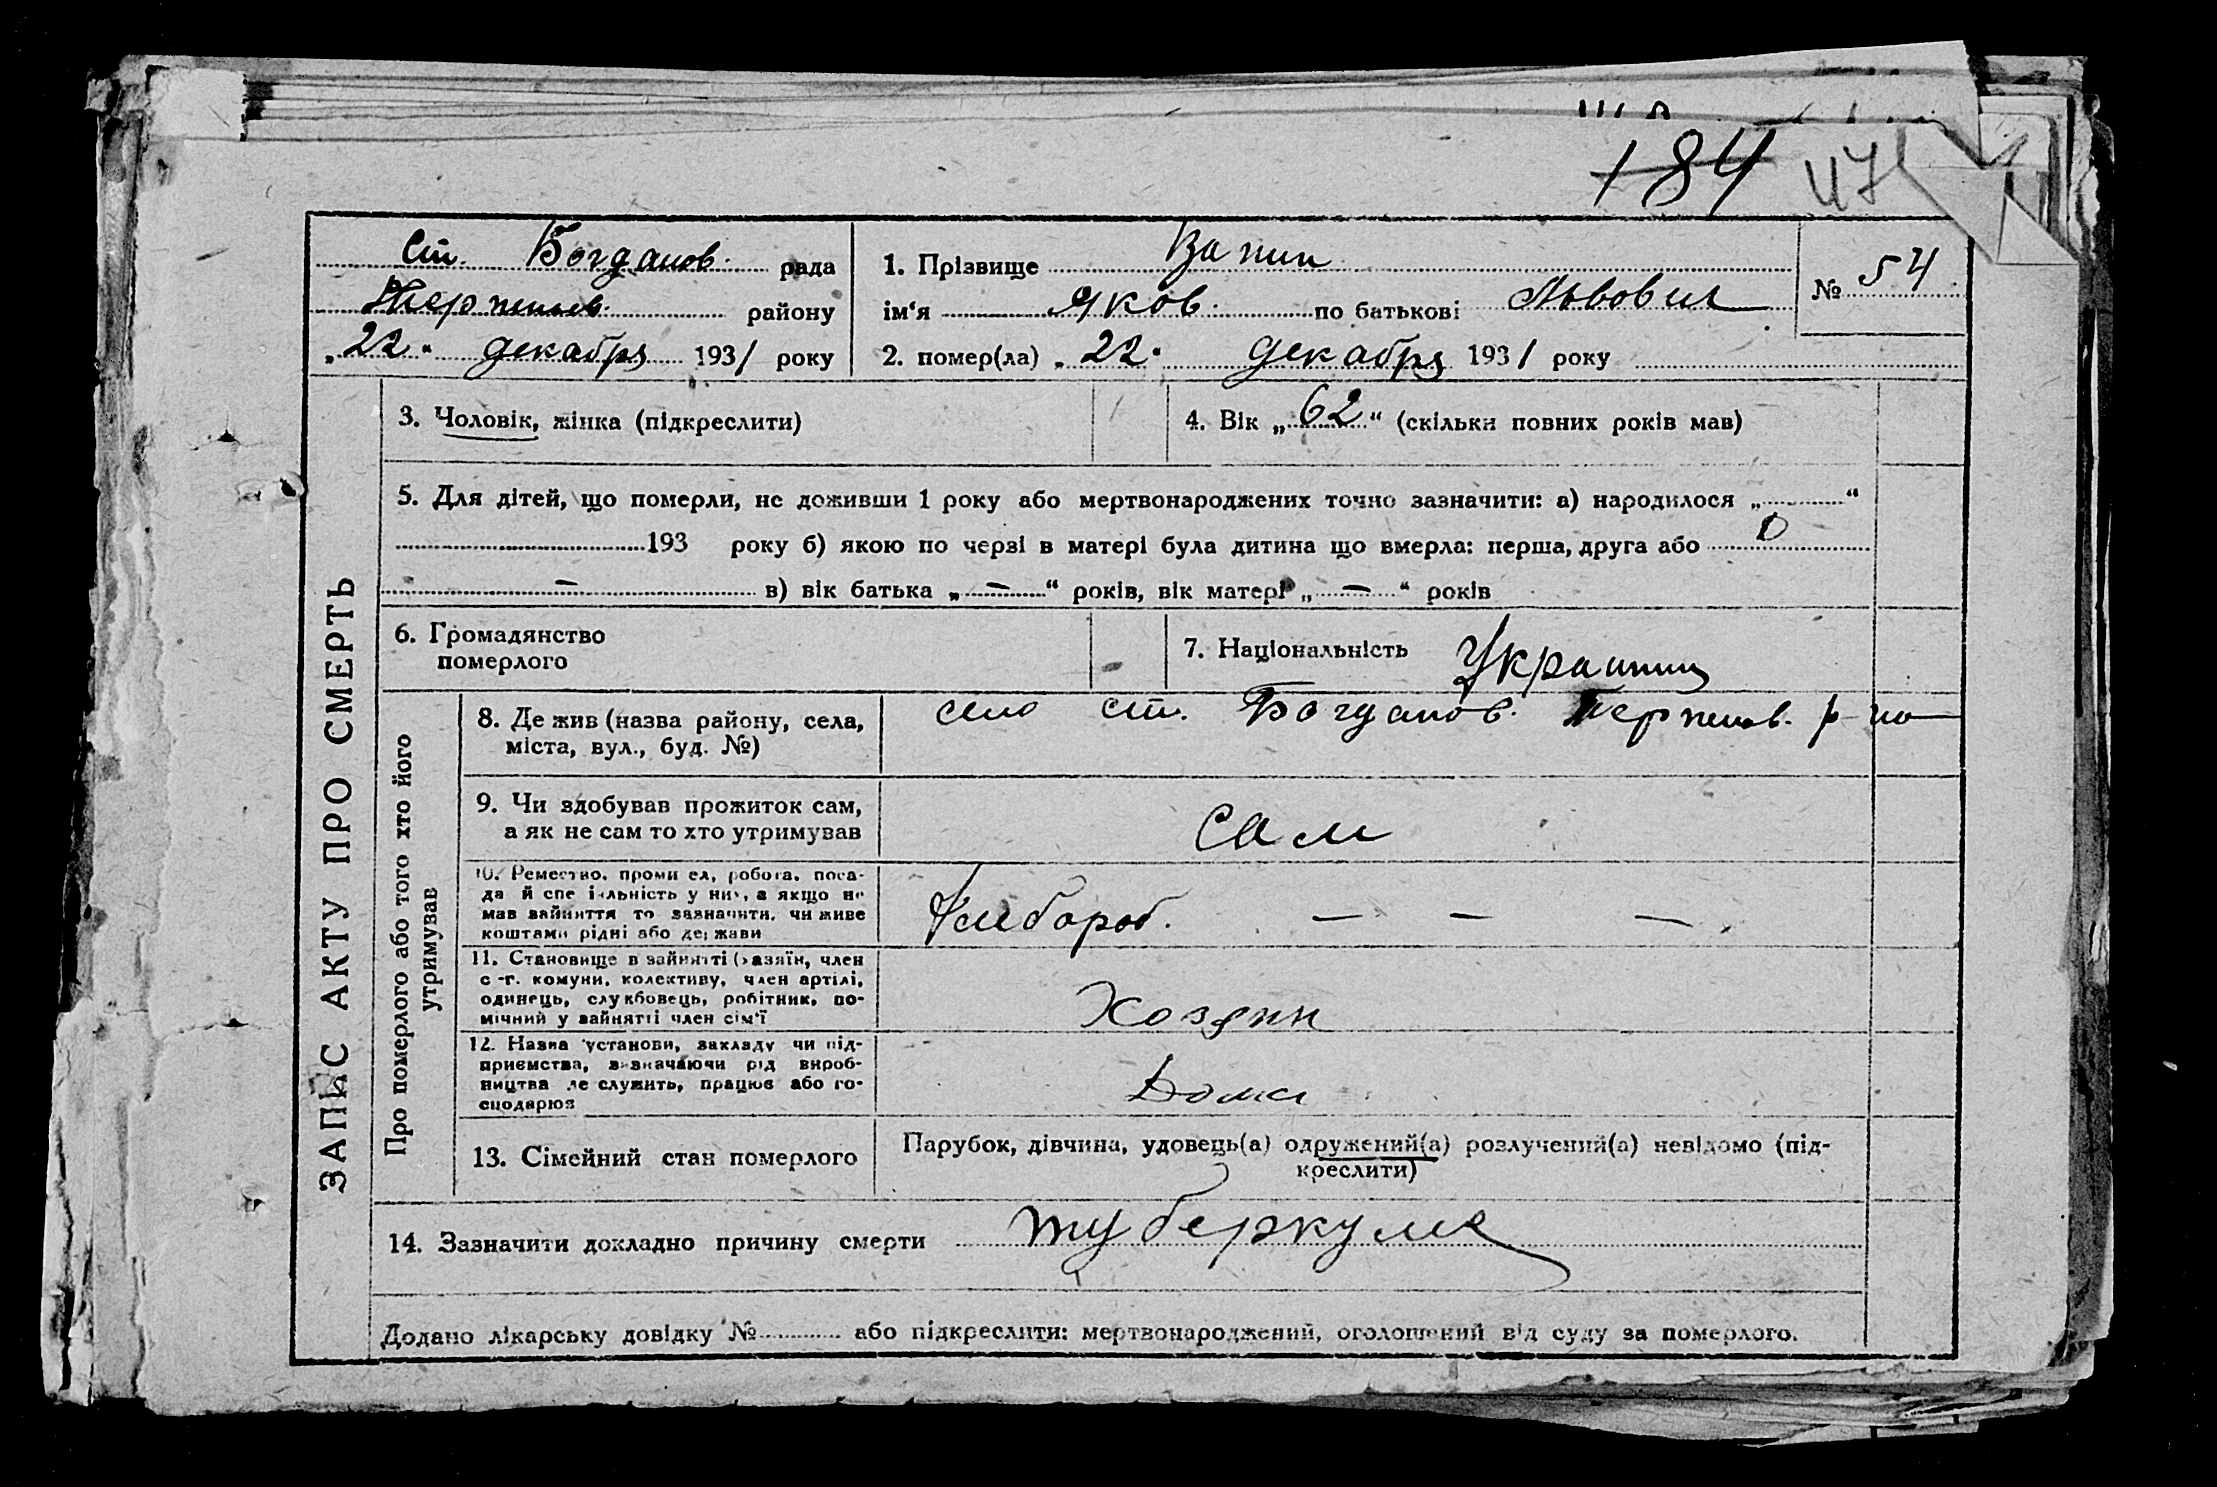 184 47
Ст. Богданов. рада
району
„22“ декабря 1931 року
1. Прізвище
ім'я Яков. по батькові Львович
2. помер(ла) „22“ декабря 1931 року
№ 54
ЗАПИС АКТУ ПРО СМЕРТЬ
3. Чоловік, жінка (підкреслити)
4. Вік „62“ (скільки повних років мав)
5. Для дітей, що померли, не доживши 1 року або мертвонароджених точно зазначити: а) народилося „ “
193 року б) якою по черзі в матері була дитина що вмерла: перша, друга або
— в) вік батька „—“ років, вік матері „—“ років
6. Громадянство
померлого
7. Національність Украинец
Про померлого або того хто його
утримував
8. Де жив (назва району, села,
міста, вул., буд. №)
село ст. Богданов. р-на
9. Чи здобував прожиток сам,
а як не сам то хто утримував
сам
10. Ремество, промисел, робота, поса-
да й спеціальність у них, а якщо не
мав зайняття то зазначити, чи живе
коштами рідні або держави
Хлебороб. — — —
11. Становище в зайнятті (хазяїн, член
с.-г. комуни, колективу, член артілі,
одинець, службовець, робітник, по-
мічний у зайнятті член сім'ї
Хозяин
12. Назва установи, закладу чи під-
приємства, визначаючи рід вироб-
ництва де служить, працює або го-
сподарює
Дома
13. Сімейний стан померлого
Парубок, дівчина, удовець(а) одружений(а) розлучений(а) невідомо (під-
креслити)
14. Зазначити докладно причину смерти туберкулез
Додано лікарську довідку № або підкреслити: мертвонароджений, оголошений від суду за померлого.